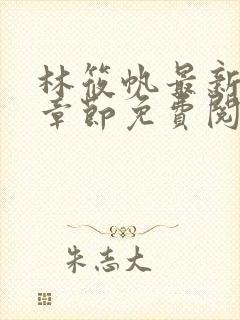 林筱帆最新
章節免費閱
朱志大